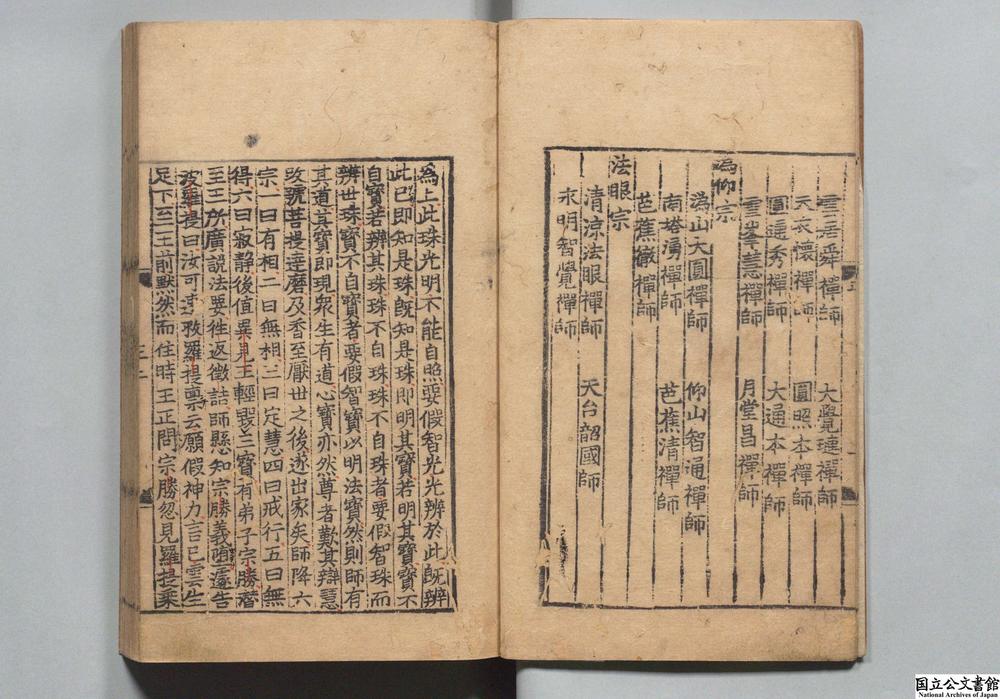 雲居舜禪師 大覺璉禪師
天衣懷禪師 圓照本禪師
圓通秀禪師 大通本禪師
雲峯慧禪師 月堂昌禪師
潙仰宗
潙山大圓禪師 仰山智通禪師
南塔湧禪師 芭蕉清禪師
芭蕉徹禪師
法眼宗
清涼法眼禪師 天台韶國師
永明智覺禪師
為上此珠光明不能自照要假智光光辨於此旣辨
此已即知是珠旣知是珠即明其寶若明其寶寶不
自寶若辨其珠珠不自珠珠不自珠者要假智珠而
辨世珠寶不自寶者要假智寶以明法寶然則師有
其道其寶即現衆生有道心寶亦然尊者歎其辯慧
改號菩提達磨及香至厭世之後遂出家矣師降六
宗一曰有相二曰無相三曰定慧四曰戒行五曰無
得六曰寂靜後值異見王輕毀三寶有弟子宗勝潛
至王所廣說法要徃返徵詰師懸知宗勝義墮遽告
波羅提曰汝可速救羅提禀云願假神力言已雲生
足下至王前默然而住時王正問宗勝忽見羅提乗
国立公文書館
National Archives of Japan